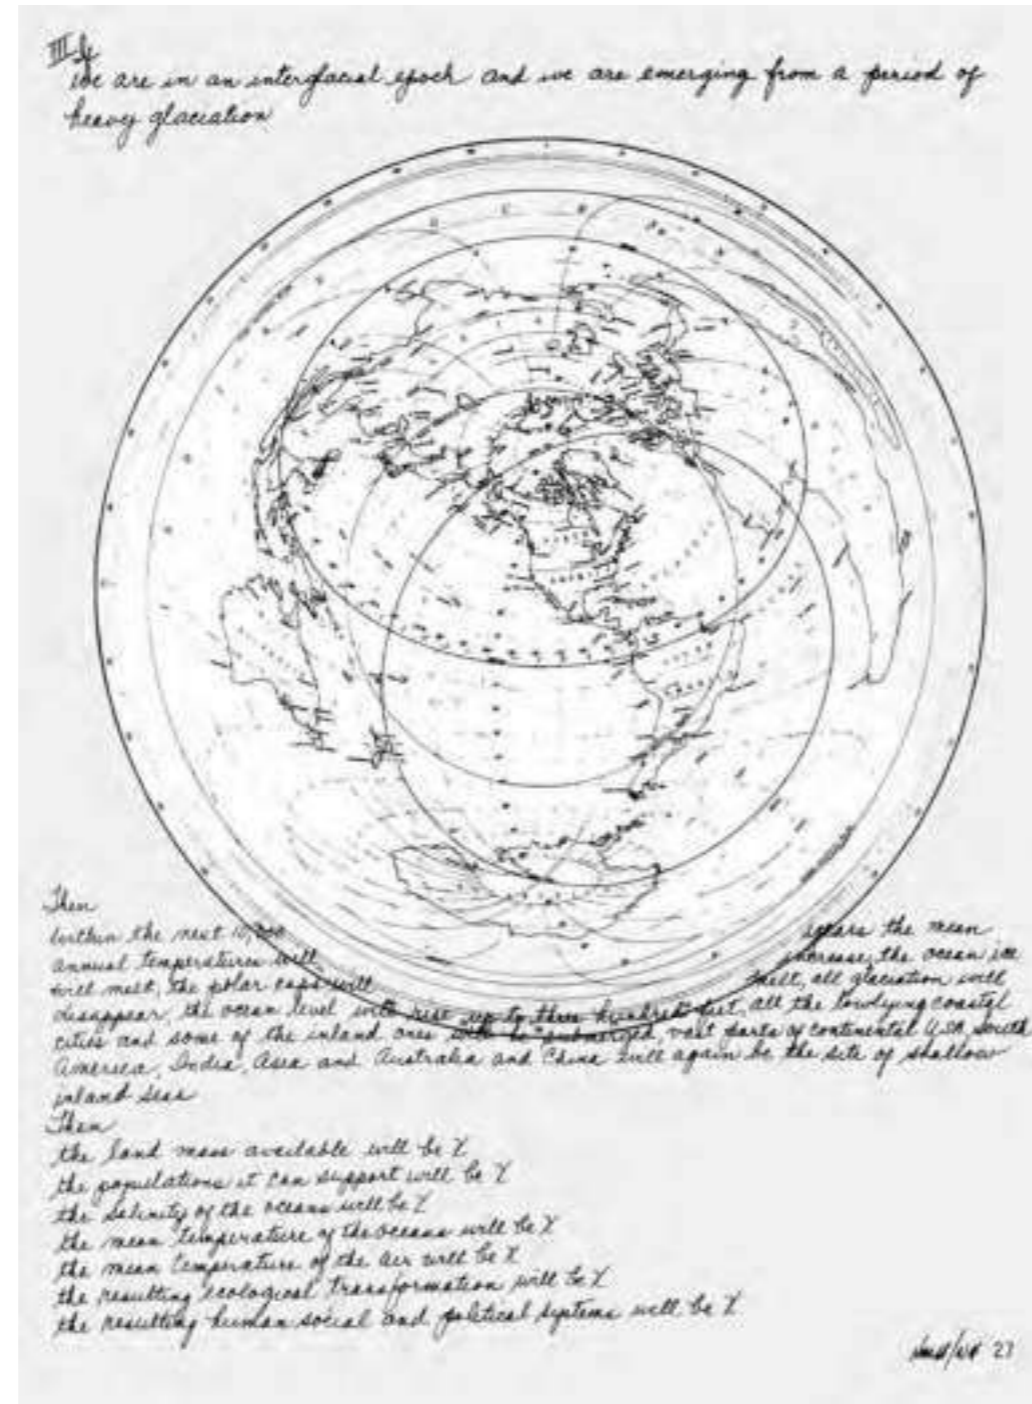 III If
We are in an interglacial epoch and we are emerging from a period of
heavy glaciation
Then
within the next 10,000 years the mean
annual temperatures will increase, the ocean ice
will melt, the polar caps will melt, all glaciation will
disappear, the ocean level will rise up to three hundred feet, all the lowlying coastal
cities and some of the inland ones will be submerged, vast parts of continental USA, South
America, India, Asia and Australia and China will again be the site of shallow
inland seas
Then
the land mass available will be X
the populations it can support will be X
the salinity of the oceans will be X
the mean temperature of the oceans will be X
the mean temperature of the air will be X
the resulting ecological transformation will be X
the resulting human social and political systems will be X
27